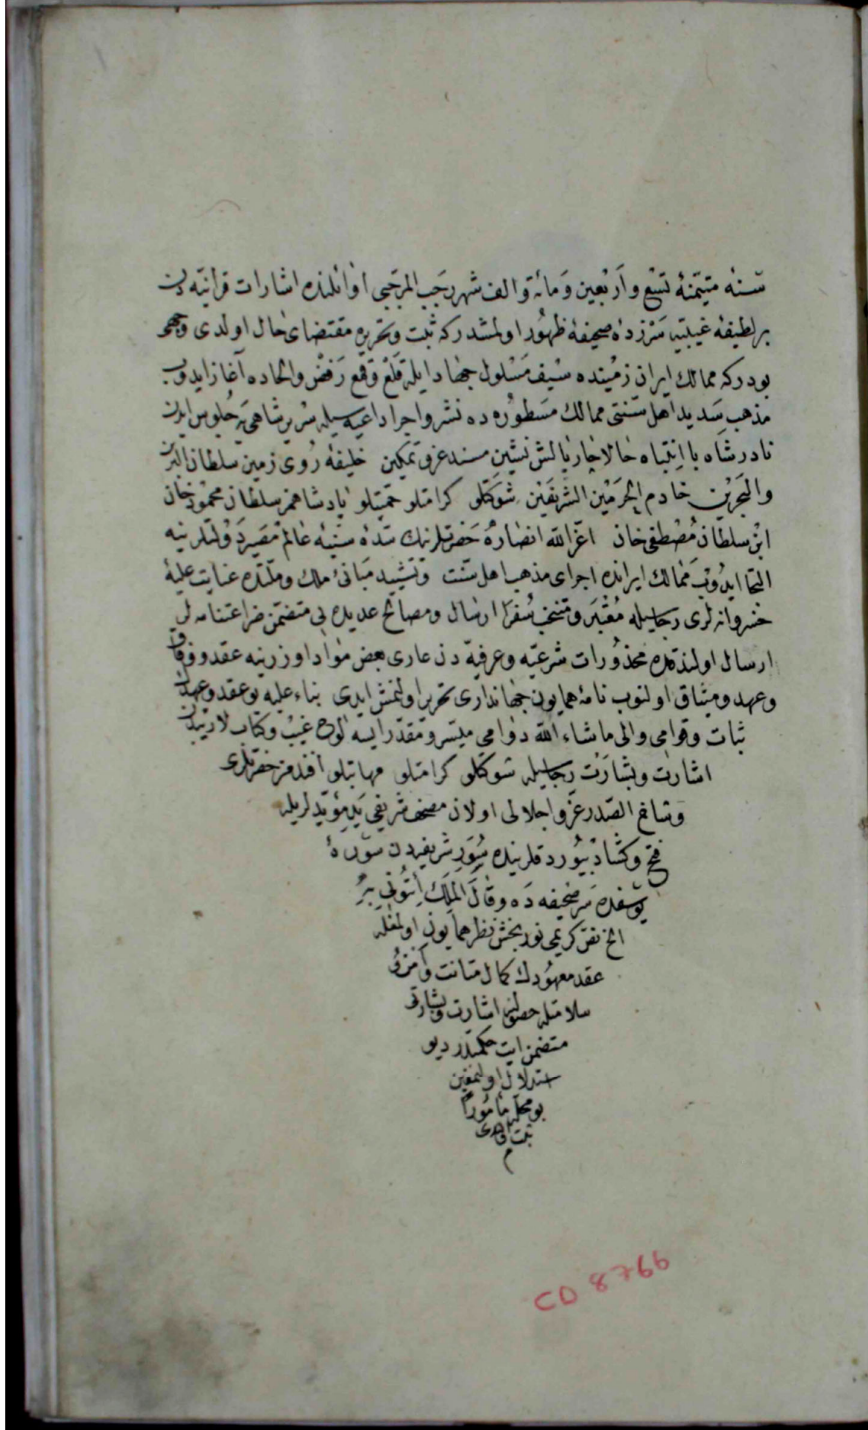 سنه متیمنهٔ تسع وأربعین ومائة والف شهر رجب المرجبی اوائلنده اشارات قرآنیه دن
بر لطیفهٔ غیبیه سرزدهٔ صحیفهٔ ظهور اولمشدر که ثبت وتحریره مقتضای حال اولدی
بودر که ممالك ایران زمینده سیف مسلول جهاد ایله قلع وقمع رفض والحاده آغاز ایدوب
مذهب سدید اهل سنتی ممالك مسطوره ده نشر واجرا داعیه سیله سریر شاهی یه جلوس ایدن
نادر شاه با انتباه حالا چار بالش نشین مسند عز وتمکین خلیفهٔ روی زمین سلطان البرین
والبحرین خادم الحرمین الشریفین شوکتلو کرامتلو پادشاهمز سلطان محمود خان
ابن سلطان مصطفی خان اعز الله انصاره حضرتلرینك سدهٔ سنیهٔ دولتلرینه
التجا ایدوب ممالك ایرانده اجرای مذهب اهل سنت وتشیید مبانیٔ ملك وملتده عنایت علیهٔ
خسروانه لری رجاسیله معتبر ومنتخب سفرا ارسال ومصالح عدیده یی متضمن ضراعتنامه لر
ارسال اولندقده محذورات شرعیه وعرفیه دن عاری بعض مواد اوزرینه عقد ووفاق
وعهد ومیثاق اولنوب نامهٔ همایون جهانداری تحریر اولنمش ایدی بناء علیه بو عقد وعهدك
ثبات وقوامی والی ماشاء الله دوامی میسر ومقدر ایسه لوح غیب وکتاب لاریبدن
اشارت وبشارت رجاسیله شوکتلو کرامتلو مهابتلو افندمز حضرتلری
الصدر عز واجلالی اولان مصحف شریفی ید مؤید لریله
فتح وکشاد بیوردقلرنده سور شریفه دن سورهٔ
یوسفده سر صحیفه ده وقال الملك ائتونی به
الخ نص کریمی نور بخش نظر همایون اولمغله
عقد معهودك کمال متانت
سلامتله حصولنه اشارت وبشارتی
متضمن آیت حکمتدر دیو
استدلال اولنمغین
بو محله مأمورا
ثبت اولندی
م
CD 8766